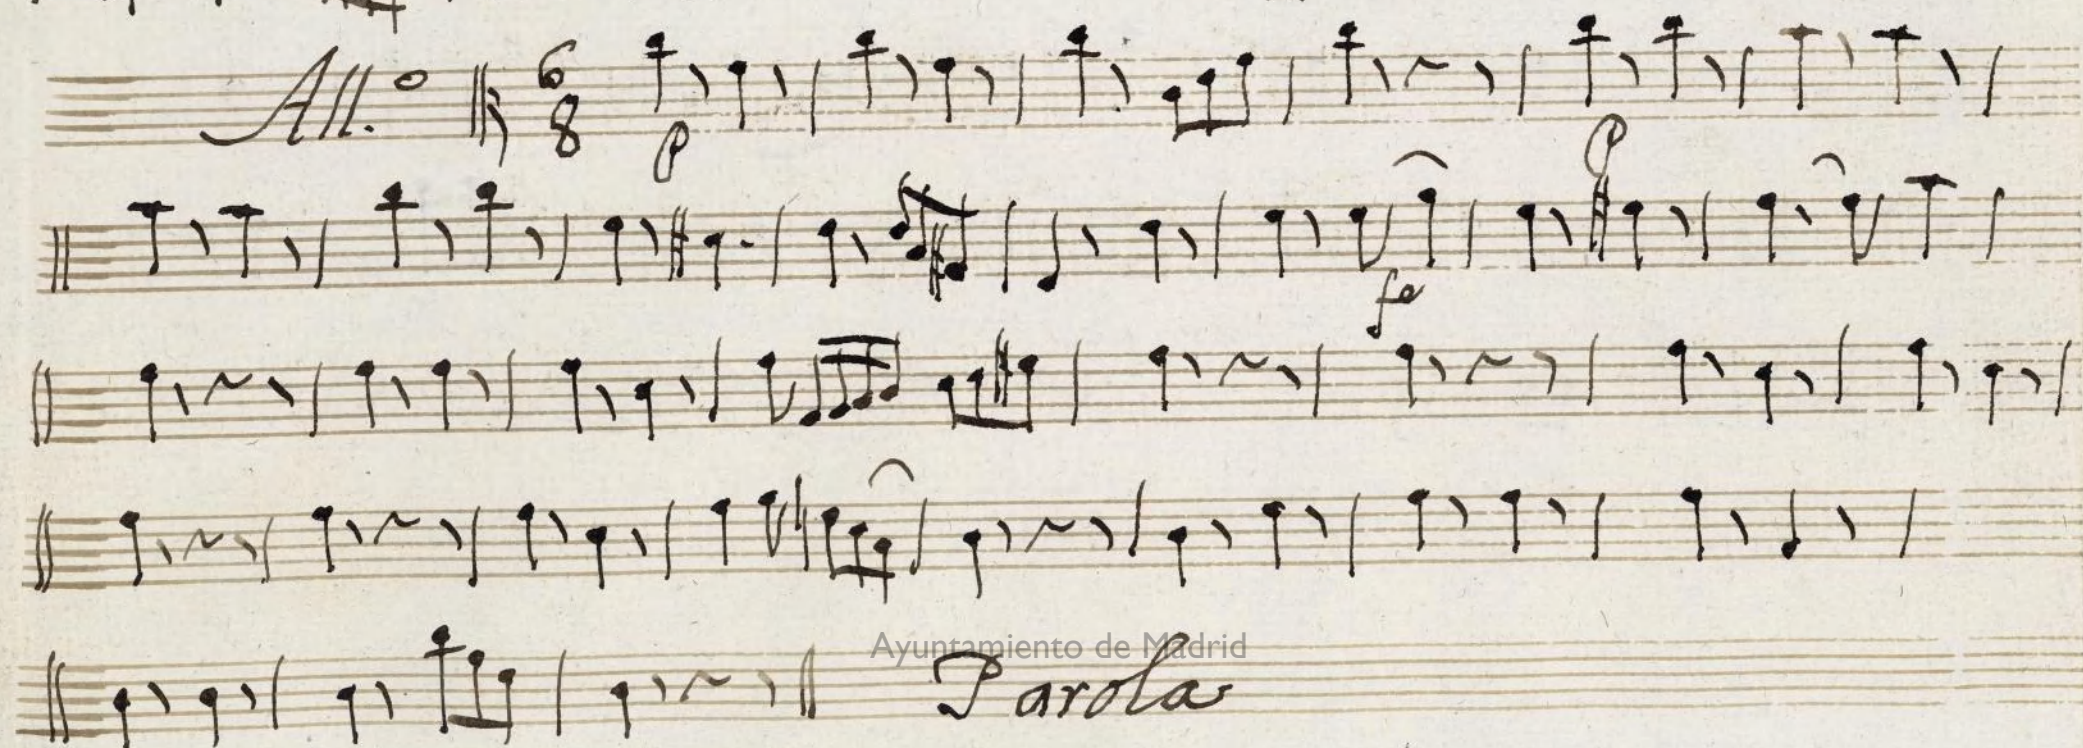 All.o 6/8
P P
fe
Ayuntamiento de Madrid
Parola